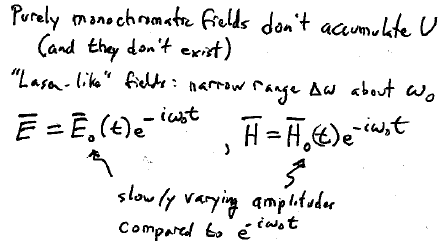 Purely monochromatic fields don't accumulate U
(and they don't exist)
"Laser-like" fields: narrow range Δω about ω₀
E̅ = E̅₀(t)e^{-iω₀t} , H̅ = H̅₀(t)e^{-iω₀t}
slowly varying amplitudes
compared to e^{-iω₀t}